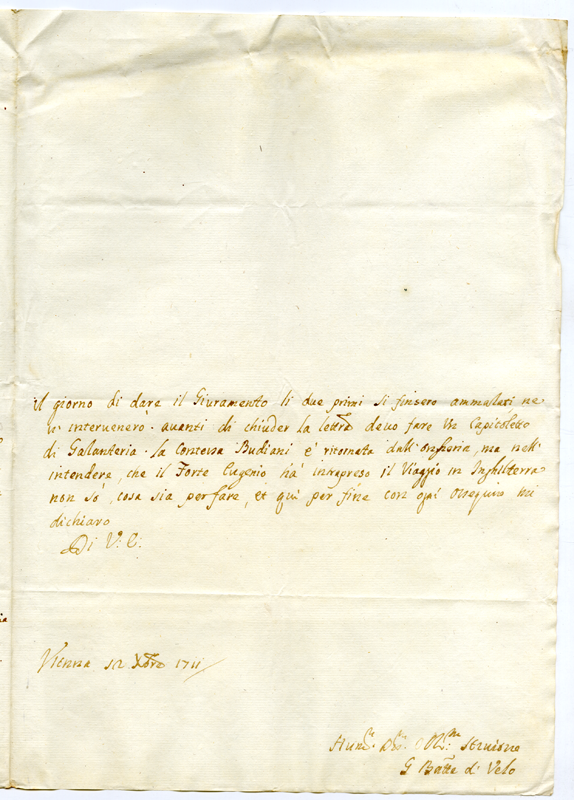 il giorno di dare il Giuramento li due primi si finsero ammalati ne
u' intervenero. auanti di chiuder la lettra deuo fare un Capitoletto
di Galanteria. la Contessa Budiani è ritornata dall'ongheria, ma nell'
intendere, che il Forte Eugenio hà intrapreso il Viaggio in Inghilterra
non sò, cosa sia per fare, et qui per fine con ogni ossequio mi
dichiaro
Di V: E:
Vienna 12 Xbre 1711
Hum:o D:mo Obl:mo seruitore
G Batta di Velo